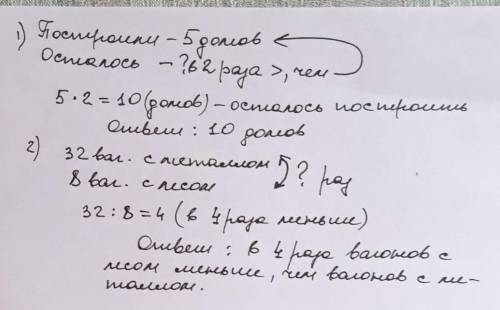 1) Построили - 5 домов
Осталось - ? в 2 раза >, чем
5 · 2 = 10 (домов) - осталось построить
Ответ: 10 домов
2) 32 ваг. с металлом
? раз
8 ваг. с лесом
32 : 8 = 4 (в 4 раза меньше)
Ответ: в 4 раза вагонов с
лесом меньше, чем вагонов с ме-
таллом.